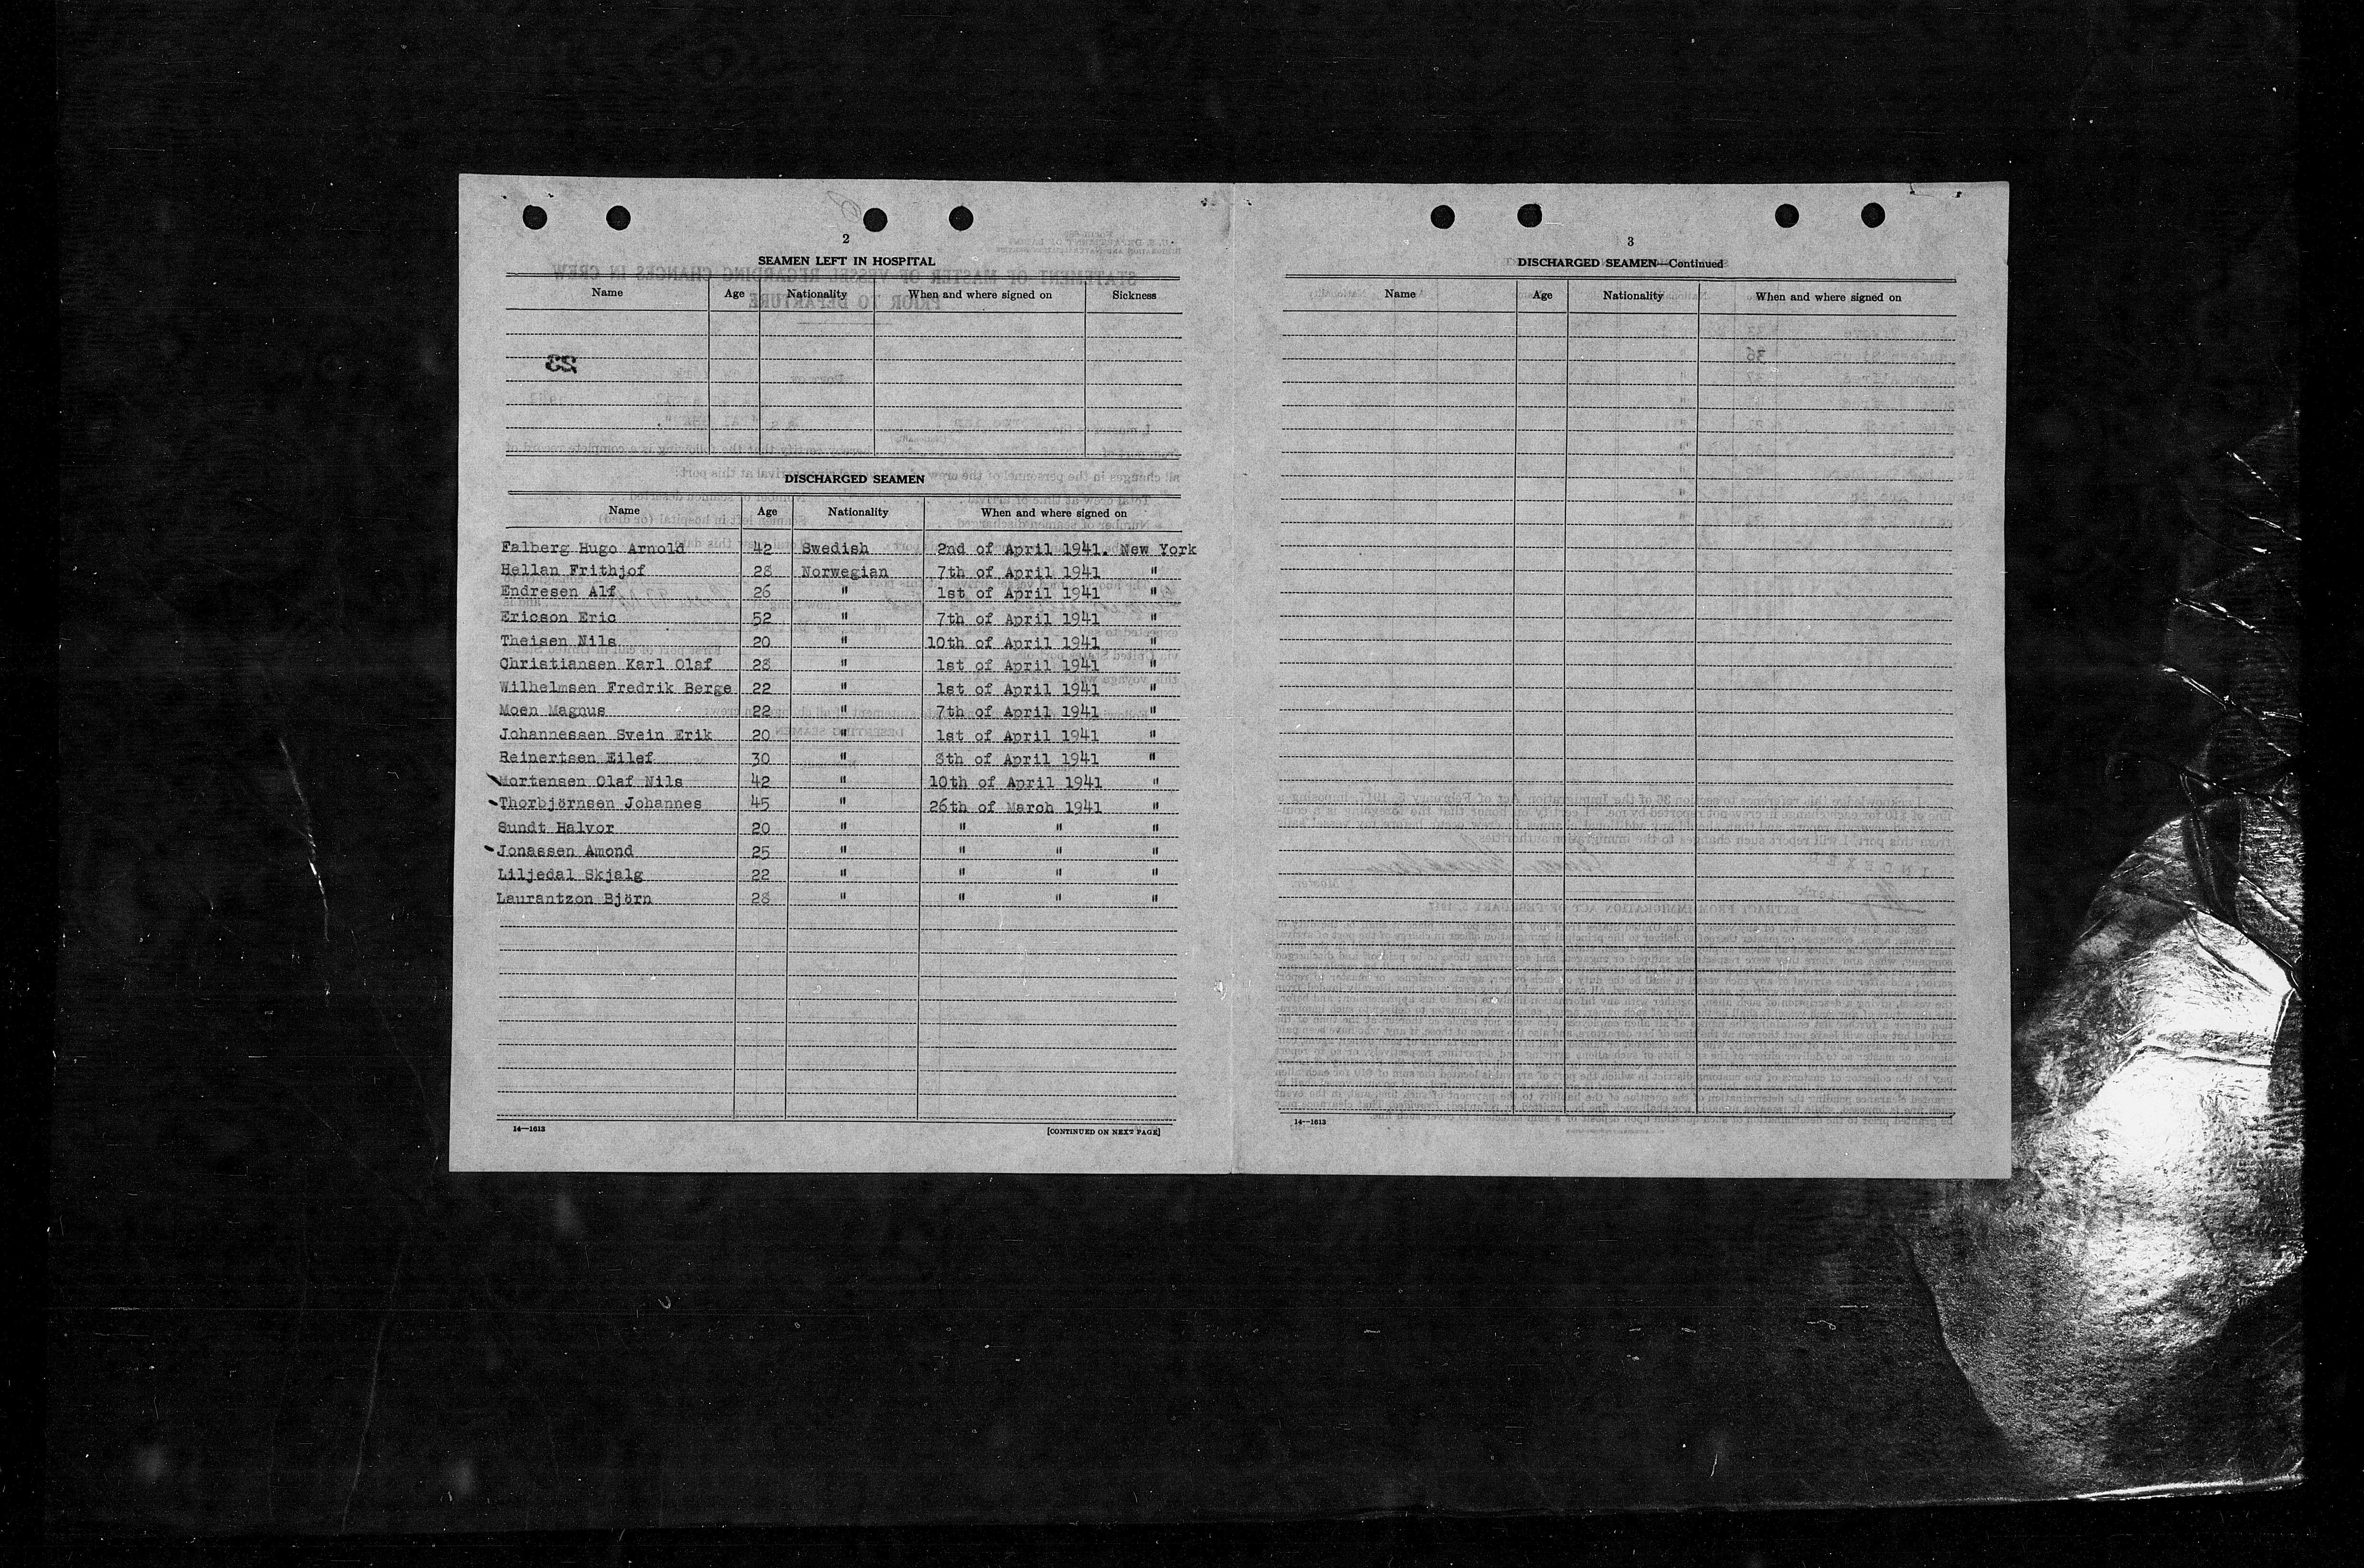 2
SEAMEN LEFT IN HOSPITAL
Name Age Nationality When and where signed on Sickness
23
DISCHARGED SEAMEN
Name Age Nationality When and where signed on
Falberg Hugo Arnold 42 Swedish 2nd of April 1941. New York
Hellan Frithjof 28 Norwegian 7th of April 1941 "
Endresen Alf 26 " 1st of April 1941 "
Ericson Eric 52 " 7th of April 1941 "
Theisen Nils 20 " 10th of April 1941 "
Christiansen Karl Olaf 28 " 1st of April 1941 "
Wilhelmsen Fredrik Berge 22 " 1st of April 1941 "
Moen Magnus 22 " 7th of April 1941 "
Johannessen Svein Erik 20 " 1st of April 1941 "
Reinertsen Eilef 30 " 8th of April 1941 "
Mortensen Olaf Nils 42 " 10th of April 1941 "
Thorbjörnsen Johannes 45 " 26th of March 1941 "
Sundt Halvor 20 " " " "
Jonassen Amond 25 " " " "
Liljedal Skjalg 22 " " " "
Laurantzon Björn 28 " " " "
14—1613
[CONTINUED ON NEXT PAGE]
3
DISCHARGED SEAMEN—Continued
Name Age Nationality When and where signed on
14—1613